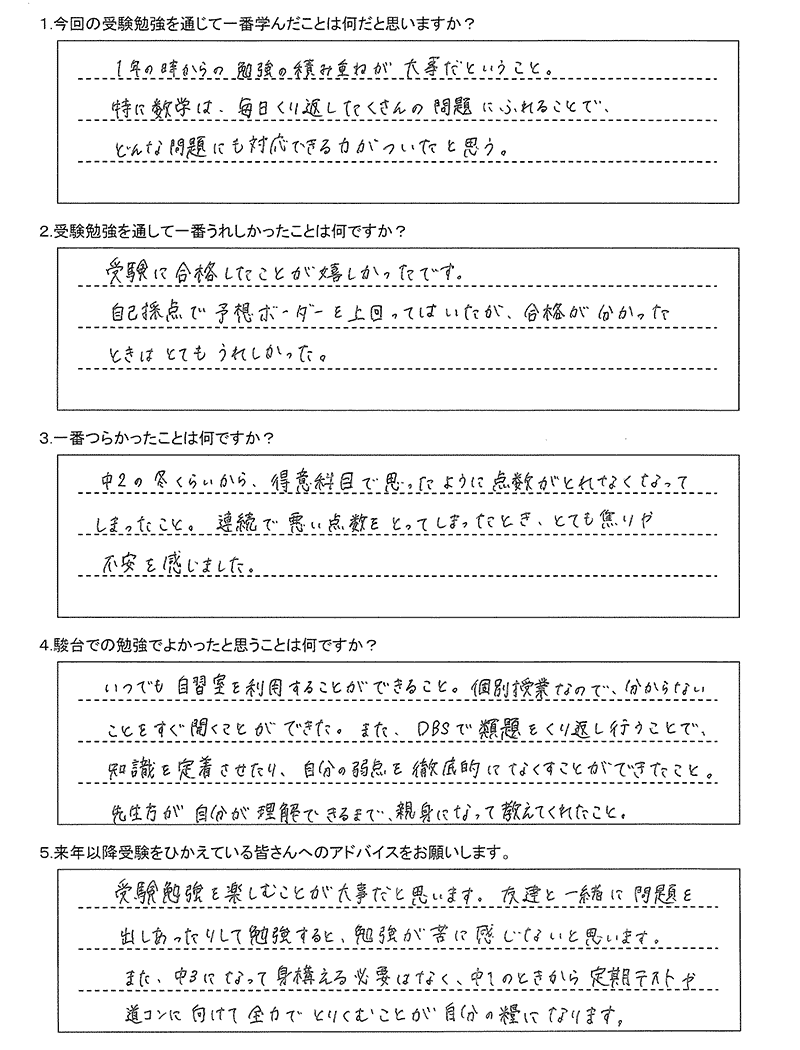 1.今回の受験勉強を通じて一番学んだことは何だと思いますか？
1年の時からの勉強の積み重ねが大事だということ。
特に数学は、毎日くり返したくさんの問題にふれることで、
どんな問題にも対応できる力がついたと思う。
2.受験勉強を通して一番うれしかったことは何ですか？
受験に合格したことが嬉しかったです。
自己採点で予想ボーダーを上回ってはいたが、合格が分かった
ときはとてもうれしかった。
3.一番つらかったことは何ですか？
中2の冬くらいから、得意科目で思ったように点数がとれなくなって
しまったこと。連続で悪い点数をとってしまったとき、とても焦りや
不安を感じました。
4.駿台での勉強でよかったと思うことは何ですか？
いつでも自習室を利用することができること。個別授業なので、分からない
ことをすぐ聞くことができた。また、DBSで類題をくり返し行うことで、
知識を定着させたり、自分の弱点を徹底的になくすことができたこと。
先生方が自分が理解できるまで、親身になって教えてくれたこと。
5.来年以降受験をひかえている皆さんへのアドバイスをお願いします。
受験勉強を楽しむことが大事だと思います。友達と一緒に問題を
出しあったりして勉強すると、勉強が苦に感じないと思います。
また、中3になって身構える必要はなく、中1のときから定期テストや
道コンに向けて全力でとりくむことが自分の糧になります。